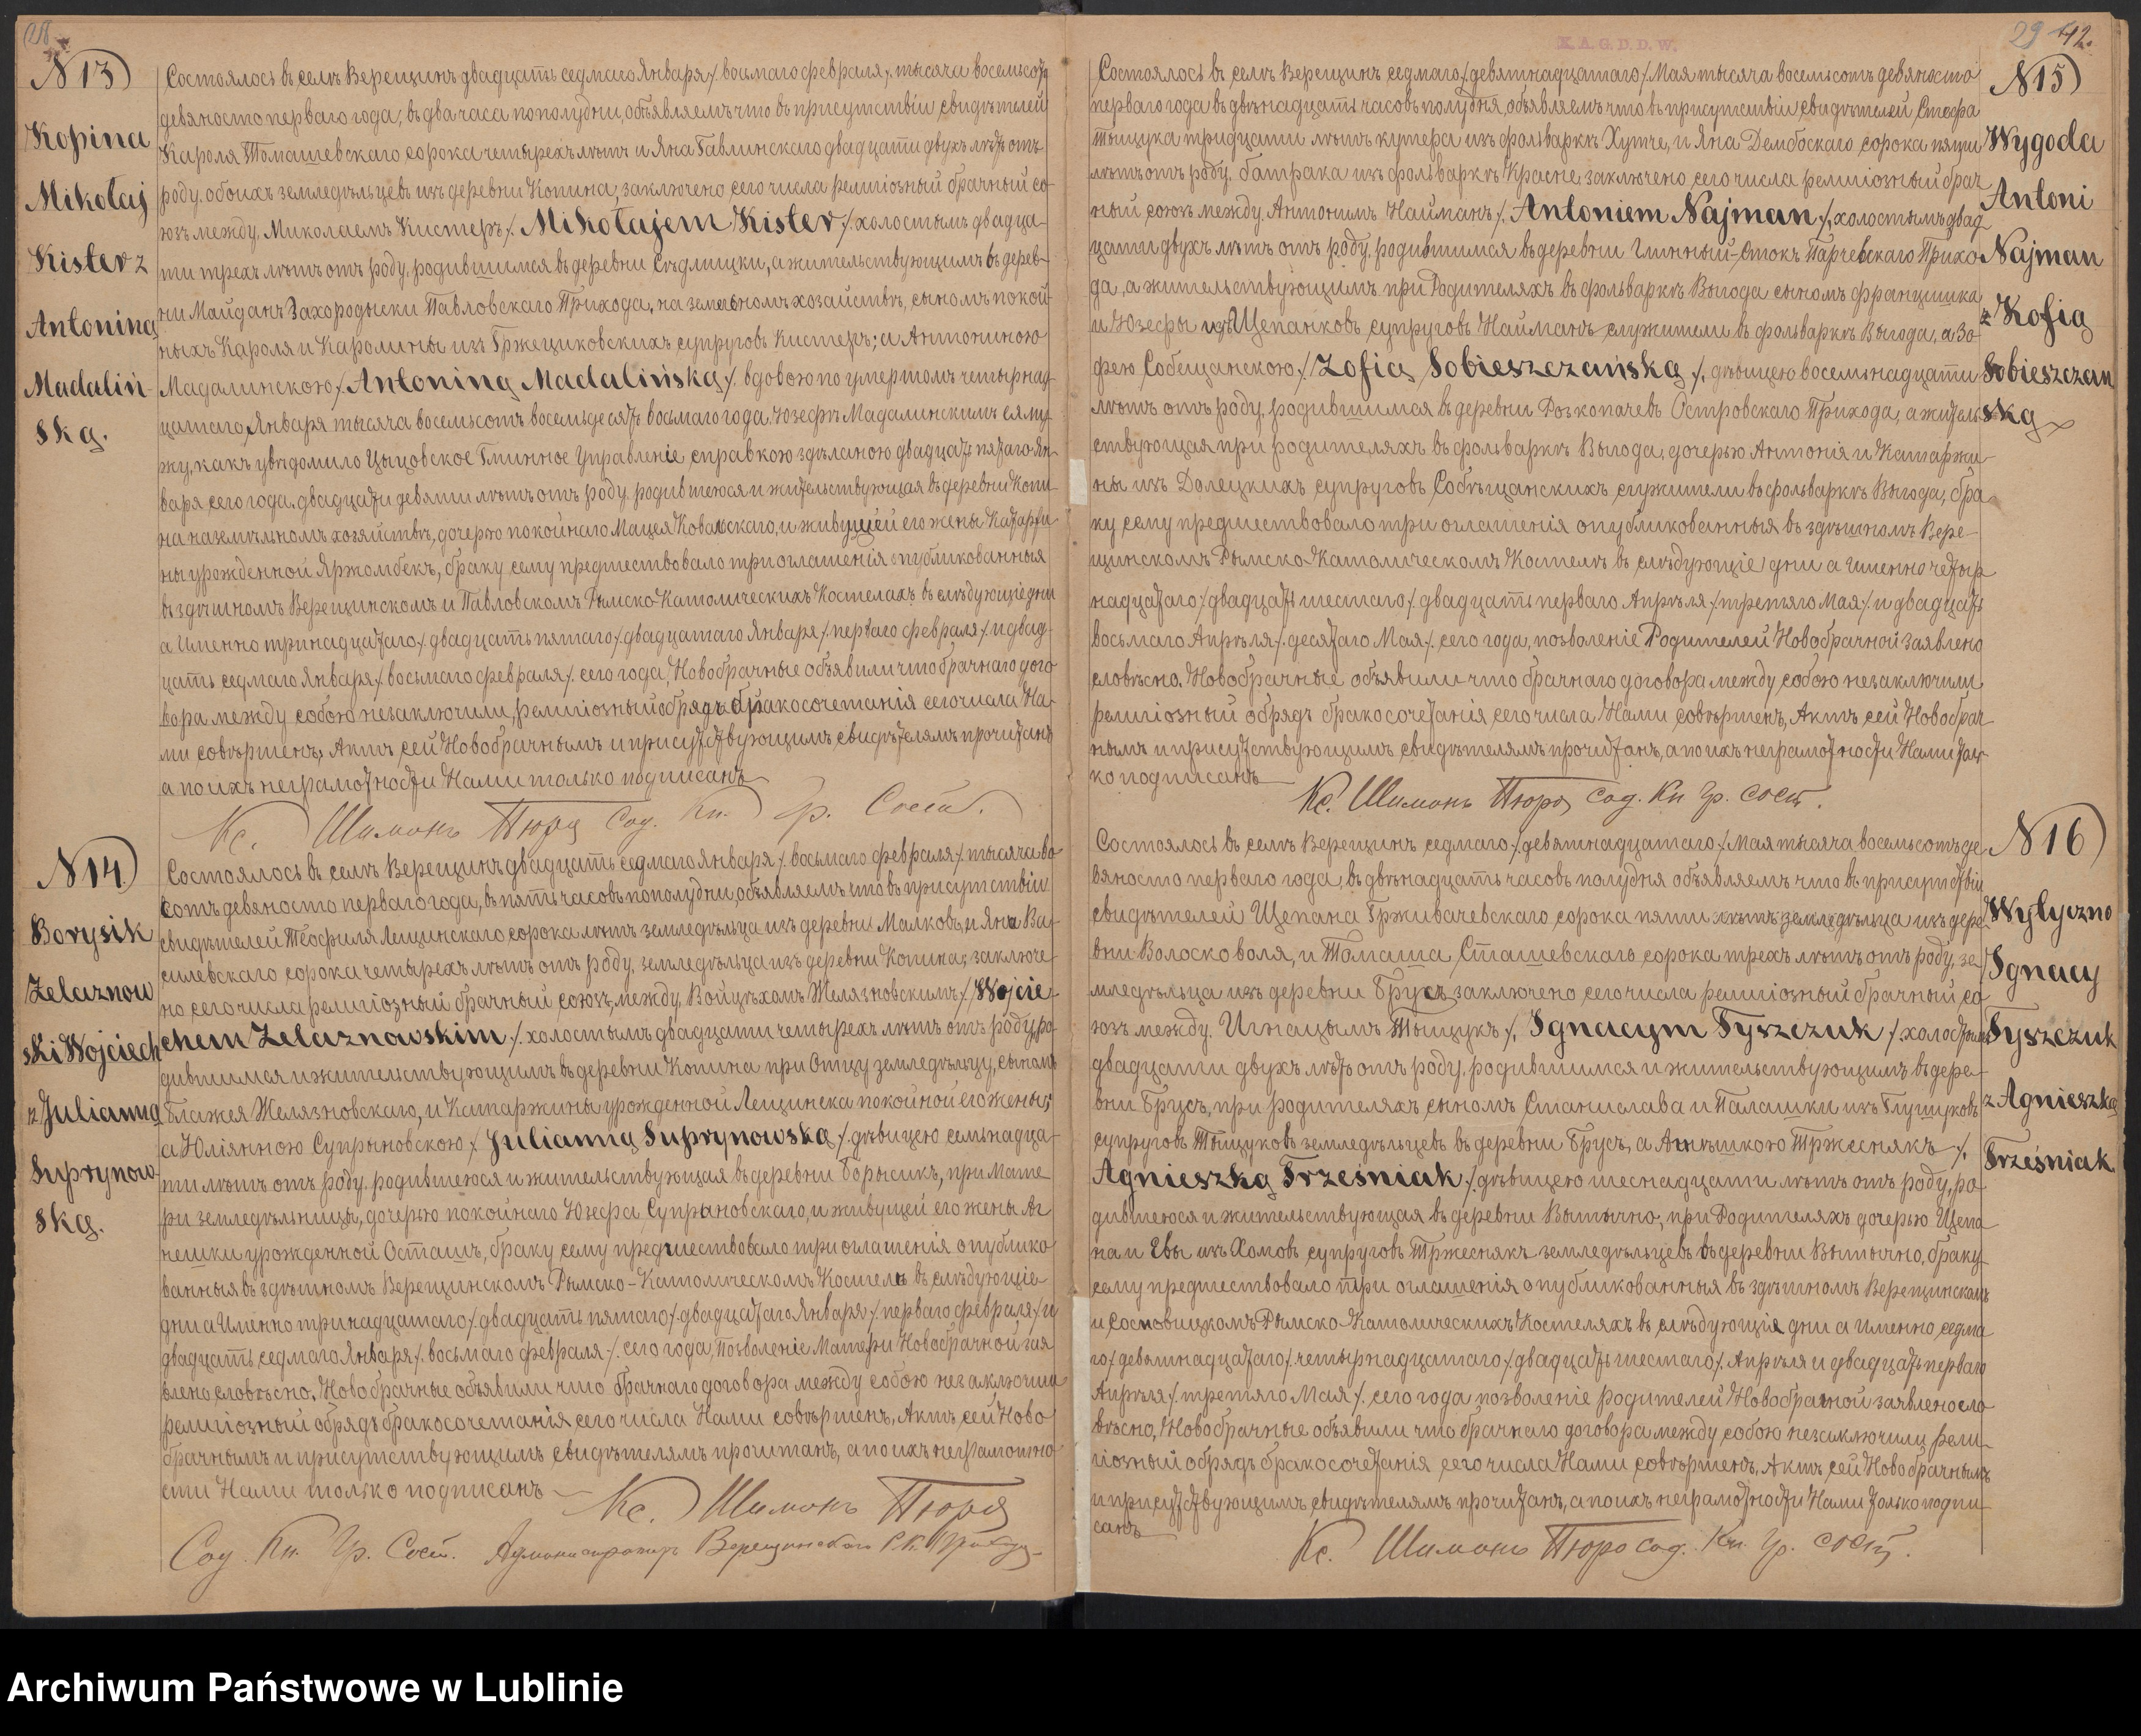 28
N 13
Kopina
Mikołaj
Kister z
Antoniną
Madaliń-
ską.
Состоялось въ селѣ Верещинъ двадцать седмаго Января /: восьмаго февраля :/ тысяча восемьсотъ
девяносто перваго года, въ два часа пополудни, объявляемъ что въ присутствіи свидѣтелей
Кароля Томашевскаго сорока четырехъ лѣтъ и Яна Гавлинскаго двадцати двухъ лѣтъ отъ
роду, обоихъ земледѣльцевъ изъ деревни Копина, заключено сего числа религіозный брачный со-
юзъ между, Миколаемъ Кистеръ /: Mikołajem Kister :/ холостымъ двадца-
ти трехъ лѣтъ отъ роду, родившимся въ деревни Сѣдлищки, а жительствующимъ въ дерев-
ни Майданъ Захородыски Павловскаго Прихода, на земельномъ хозайствѣ, сыномъ покой-
ныхъ Кароля и Каролины изъ Гржециковскихъ супруговъ Кистеръ; а Антониною
Мадалинскою /: Antoniną Madalińską :/ вдовою по умершомъ четырнад-
цатаго Января тысяча восемьсотъ восемьдесятъ восьмаго года Юзефѣ Мадалинскимъ ея му-
жу, какъ увѣдомило Цыцовское Гминное Управленіе справкою здѣланою двадцать пятаго Ян-
варя сего года, двадцати девяти лѣтъ отъ роду, родившеюся и жительствующая въ деревни Копи-
на на земельномъ хозяйствѣ, дочерью покойнаго Мацея Ковальскаго, и живущей его жены Катаржи-
ны урожденной Яржомбекъ, браку сему предшествовало три оглашенія опубликованныя
въ здѣшномъ Верещинскомъ и Павловскомъ Рымско-Католическихъ Костелахъ въ слѣдующіе дни
а Именно тринадцатаго /: двадцать пятаго :/ двадцатаго Января /: перваго февраля :/ и двад-
цать седмаго Января /: восьмаго февраля :/ сего года, Новобрачные объявили что брачнаго дого-
вора между собою незаключили, религіозный обрядъ бракосочетанія сего числа На-
ми совѣршенъ, Актъ сей Новобрачнымъ и присутствующимъ свидѣтелямъ прочитанъ
а по ихъ неграмотности Нами только подписанъ
Кс. Шимонъ Пюро Сод. Кн. Гр. Сост.
N 14
Borysik
Zelaznow
ski Wojciech
z Julianną
Suprynow
ską.
Состоялось въ селѣ Верещинъ двадцать седмаго Января /: восьмаго февраля :/ тысяча во-
сотъ девяносто перваго года, въ пять часовъ пополудни, объявляемъ что въ присутствіи
свидѣтелей Теофиля Лещинскаго сорока лѣтъ земледѣльца изъ деревни Малковъ, и Яна Ва-
силевскаго сорока четырехъ лѣтъ отъ роду, земледѣльца изъ деревни Копина, заключе-
но сего числа религіозный брачный союзъ, между, Войцѣхомъ Желязновскимъ /: Wojcie-
chem Zelaznowskim :/ холостымъ двадцати четырехъ лѣтъ отъ роду, ро-
дившимся и жительствующимъ въ деревни Копина при Отцу земледѣльцу, сыномъ
Блажея Желязновскаго, и Катаржины урожденной Лещинска покойной его жены;
а Юліянною Супрыновскою /: Julianną Suprynowską :/ дѣвицею семьнадца-
ти лѣтъ отъ роду, родившеюся и жительствующая въ деревни Борысикъ, при Мате-
ри земледѣльницы, дочерью покойнаго Юзефа Супрановскаго, и живущей его жены Аг-
нешки урожденной Осташъ, браку сему предшествовало три оглашенія опублико-
ванныя въ здѣшномъ Верещинскомъ Рымско-Католическомъ Костелѣ въ слѣдующіе
дни а Именно тринадцатаго /: двадцать пятаго :/ двадцатаго Января /: перваго февраля :/ и
двадцать седмаго Января /: восьмаго февраля :/ сего года, Позволеніе Матери Новобрачной зая-
влено словѣсно, Новобрачные объявили что брачнаго договора между собою незаключили
религіозный обрядъ бракосочетанія сего числа Нами совѣршенъ, Актъ сей Ново
брачнымъ и присутствующимъ свидѣтелямъ прочитанъ, а по ихъ неграмотно
сти Нами только подписанъ
Кс. Шимонъ Пюро
Сод. Кн. Гр. Сост. Администраторъ Верещинскаго Р. К. Прихода
X. A. G. D. D. W.
29 42.
N 15
Wygoda
Antoni
Najman
z Zofią
Sobieszczań
ską
Состоялось въ селѣ Верещинъ седмаго /: девятнадцатаго :/ Мая тысяча восемьсотъ девяносто
перваго года въ двѣнадцать часовъ полудня, объявляемъ что въ присутствіи свидѣтелей Стефа
Тыщука тридцати лѣтъ кучера изъ фольваркъ Хутче, и Яна Дембоскаго сорока пяти
лѣтъ отъ роду, батрака изъ фольваркъ Красне, заключено сего числа религіозный брач
ный союзъ между, Антонимъ Найманъ /: Antoniem Najman :/ холостымъ двад
цати двухъ лѣтъ отъ роду, родившимся въ деревни Глинный-Стокъ Парчевскаго Прихо-
да, а жительствующимъ при Родителяхъ въ фольваркѣ Выгода сыномъ францишка
и Юзефы изъ Щепанковъ супруговъ Найманъ служители въ фольваркѣ Выгода, а Зо-
фею Собещанскою /: Zofią Sobieszczańską :/ дѣвицею восемьнадцати
лѣтъ отъ роду, родившимся въ деревни Розкопачевъ Островскаго Прихода, а житель
ствующая при родителяхъ въ фольваркѣ Выгода, дочерью Антонія и Катаржи-
ны изъ Долецкихъ супруговъ Собѣщанскихъ служители въ фольваркѣ Выгода, бра-
ку сему предшествовало три оглашенія опубликованныя въ здѣшномъ Вере-
щинскомъ Рымско-Католическомъ Костелѣ въ слѣдующіе дни а Именно четыр
надцатаго /: двадцать шестаго :/ двадцать перваго Апрѣля /: третяго Мая :/ и двадцать
восьмаго Апрѣля /: десятаго Мая :/ сего года, позволеніе Родителей Новобрачной заявлено
словѣсно, Новобрачные объявили что брачнаго договора между собою незаключили
религіозный обрядъ бракосочетанія сего числа Нами совѣршенъ, Актъ сей Новобрач
нымъ и присутствующимъ свидѣтелямъ прочитанъ, а по ихъ неграмотности Нами толь
ко подписанъ
Кс. Шимонъ Пюро Сод. Кн. Гр. Сост.
N 16
Wytyczno
Ignacy
Tyszczuk
z Agnieszką
Trześniak
Состоялось въ селѣ Верещинъ седмаго /: девятнадцатаго :/ Мая тысяча восемьсотъ де
вяносто перваго года, въ двѣнадцать часовъ полудня объявляемъ что въ присутствіи
свидѣтелей Щепана Грживачевскаго сорока пяти лѣтъ земледѣльца изъ дере
вни Волосковоля, и Томаша Сташевскаго сорока трехъ лѣтъ отъ роду, зе
мледѣльца изъ деревни Брусъ, заключено сего числа религіозный брачный со
юзъ между, Игнацымъ Тыщукъ /: Ignacym Tyszczuk :/ холостымъ
двадцати двухъ лѣтъ отъ роду, родившимся и жительствующимъ въ дере-
вни Брусъ, при родителяхъ сыномъ Станислава и Палашки изъ Глущуковъ
супруговъ Тыщуковъ земледѣльцевъ въ деревни Брусъ, а Агнѣшкою Тржеснякъ /:
Agnieszką Trześniak :/ дѣвицею шеснадцати лѣтъ отъ роду, ро
дившеюся и жительствующая въ деревни Вытычно, при Родителяхъ дочерью Щепа
на и Евы изъ Хомовъ супруговъ Тржеснякъ земледѣльцевъ въ деревни Вытычно, браку
сему предшествовало три оглашенія опубликованныя въ здѣшномъ Верещинскомъ
и Сосновицкомъ Рымско-Католическихъ Костеляхъ въ слѣдующія дни а Именно, седма
го /: девятнадцатаго :/ четырнадцатаго /: двадцать шестаго :/ Апрѣля и двадцать перваго
Апрѣля /: третяго Мая :/ сего года позволеніе родителей Новобрачной заявлено сло
вѣсно, Новобрачные объявили что брачнаго договора между собою незаключили рели-
гіозный обрядъ бракосочетанія сего числа Нами совѣршенъ, Актъ сей Новобрачнымъ
и присутствующимъ свидѣтелямъ прочитанъ, а по ихъ неграмотности Нами только подпи-
санъ
Кс. Шимонъ Пюро Сод. Кн. Гр. Сост.
Archiwum Państwowe w Lublinie